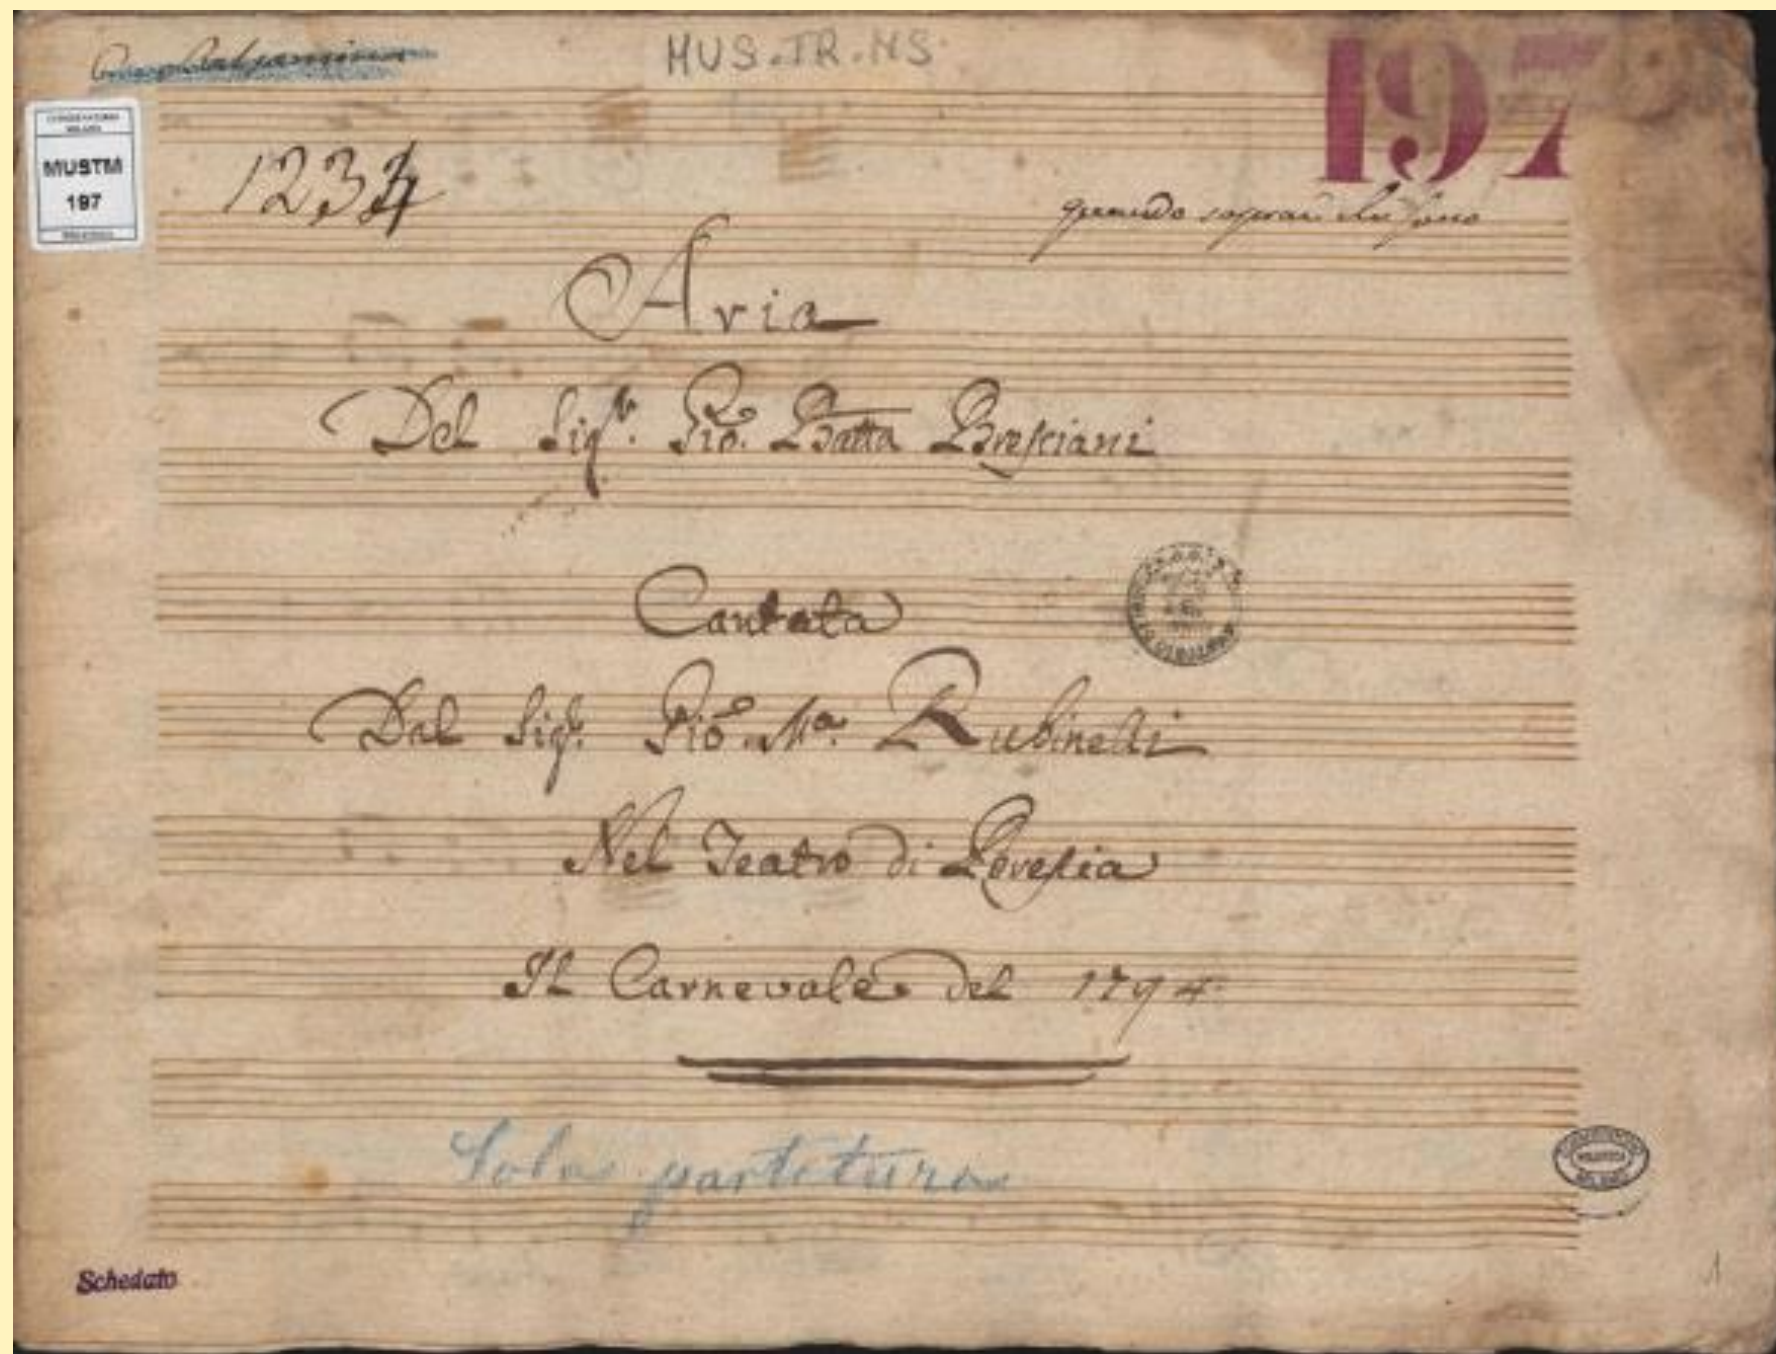 MUS.TR.MS.
197
CONSERVATORIO
MILANO
MUSTM
197
BIBLIOTECA
1234
quando saprai chi sono
Aria
Del Sigr. Gio. Batta Bresciani
Cantata
Dal Sigr. Gio. Ma. Rubinelli
Nel Teatro di Brescia
Il Carnevale del 1794
Sola partitura
Schedato
1